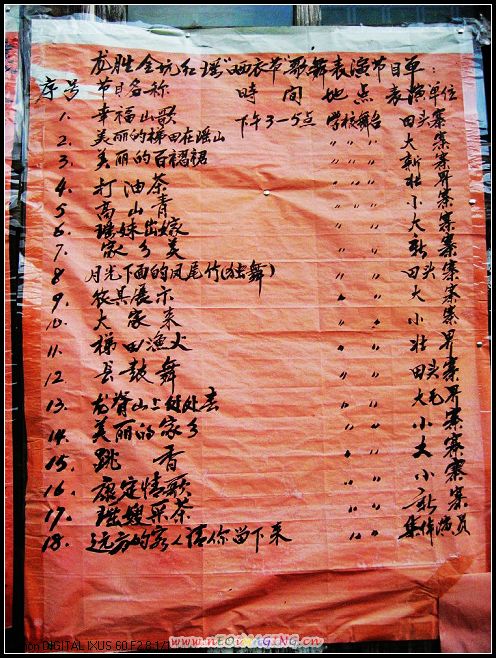 龙胜金坑红瑶"晒衣节"歌舞表演节目单
序号 节目名称 时间 地点 表演单位
1. 幸福山歌 下午3—5点 学校舞台 田头寨
2. 美丽的梯田在瑶山 〃 〃 大寨
3. 美丽的百褶裙 〃 〃 新寨
4. 打油茶 〃 〃 壮界
5 高山青 〃 〃 小寨
6. 瑶妹出嫁 〃 〃 大寨
7. 家乡美 〃 〃 新寨
8 月光下面的凤尾竹(独舞) 〃 〃 田头寨
9. 展示 〃 〃 大寨
10. 大家来 〃 〃 小寨
11. 梯田渔火 〃 〃 壮界
12 长鼓舞 〃 〃 田头寨
13. 龙脊山上处处 〃 〃 大毛界
14. 美丽的家乡 〃 〃 小寨
15. 跳香 〃 〃 大寨
16. 康定情歌 〃 〃 小寨
17. 瑶嫂采茶 〃 〃 新寨
18. 远方的客人请你留下来 〃 〃 集体演员
on DIGITAL IXUS 60,F2.8,1/
www.NEOIMAGING.cn